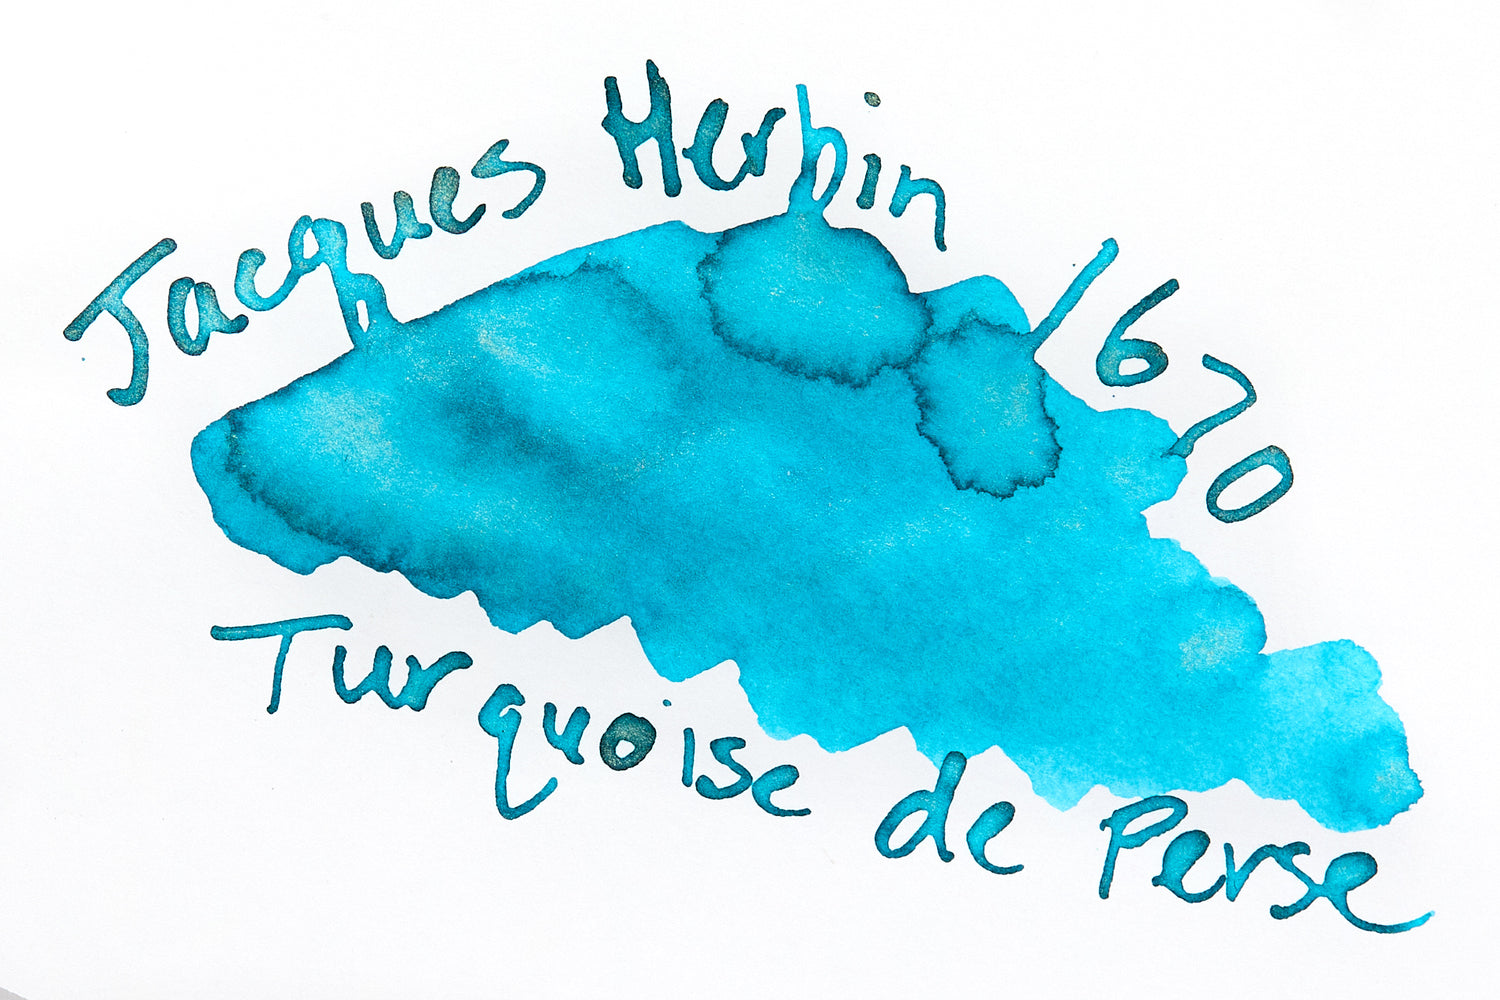 Jacques Herbin 1670
Turquoise de Perse